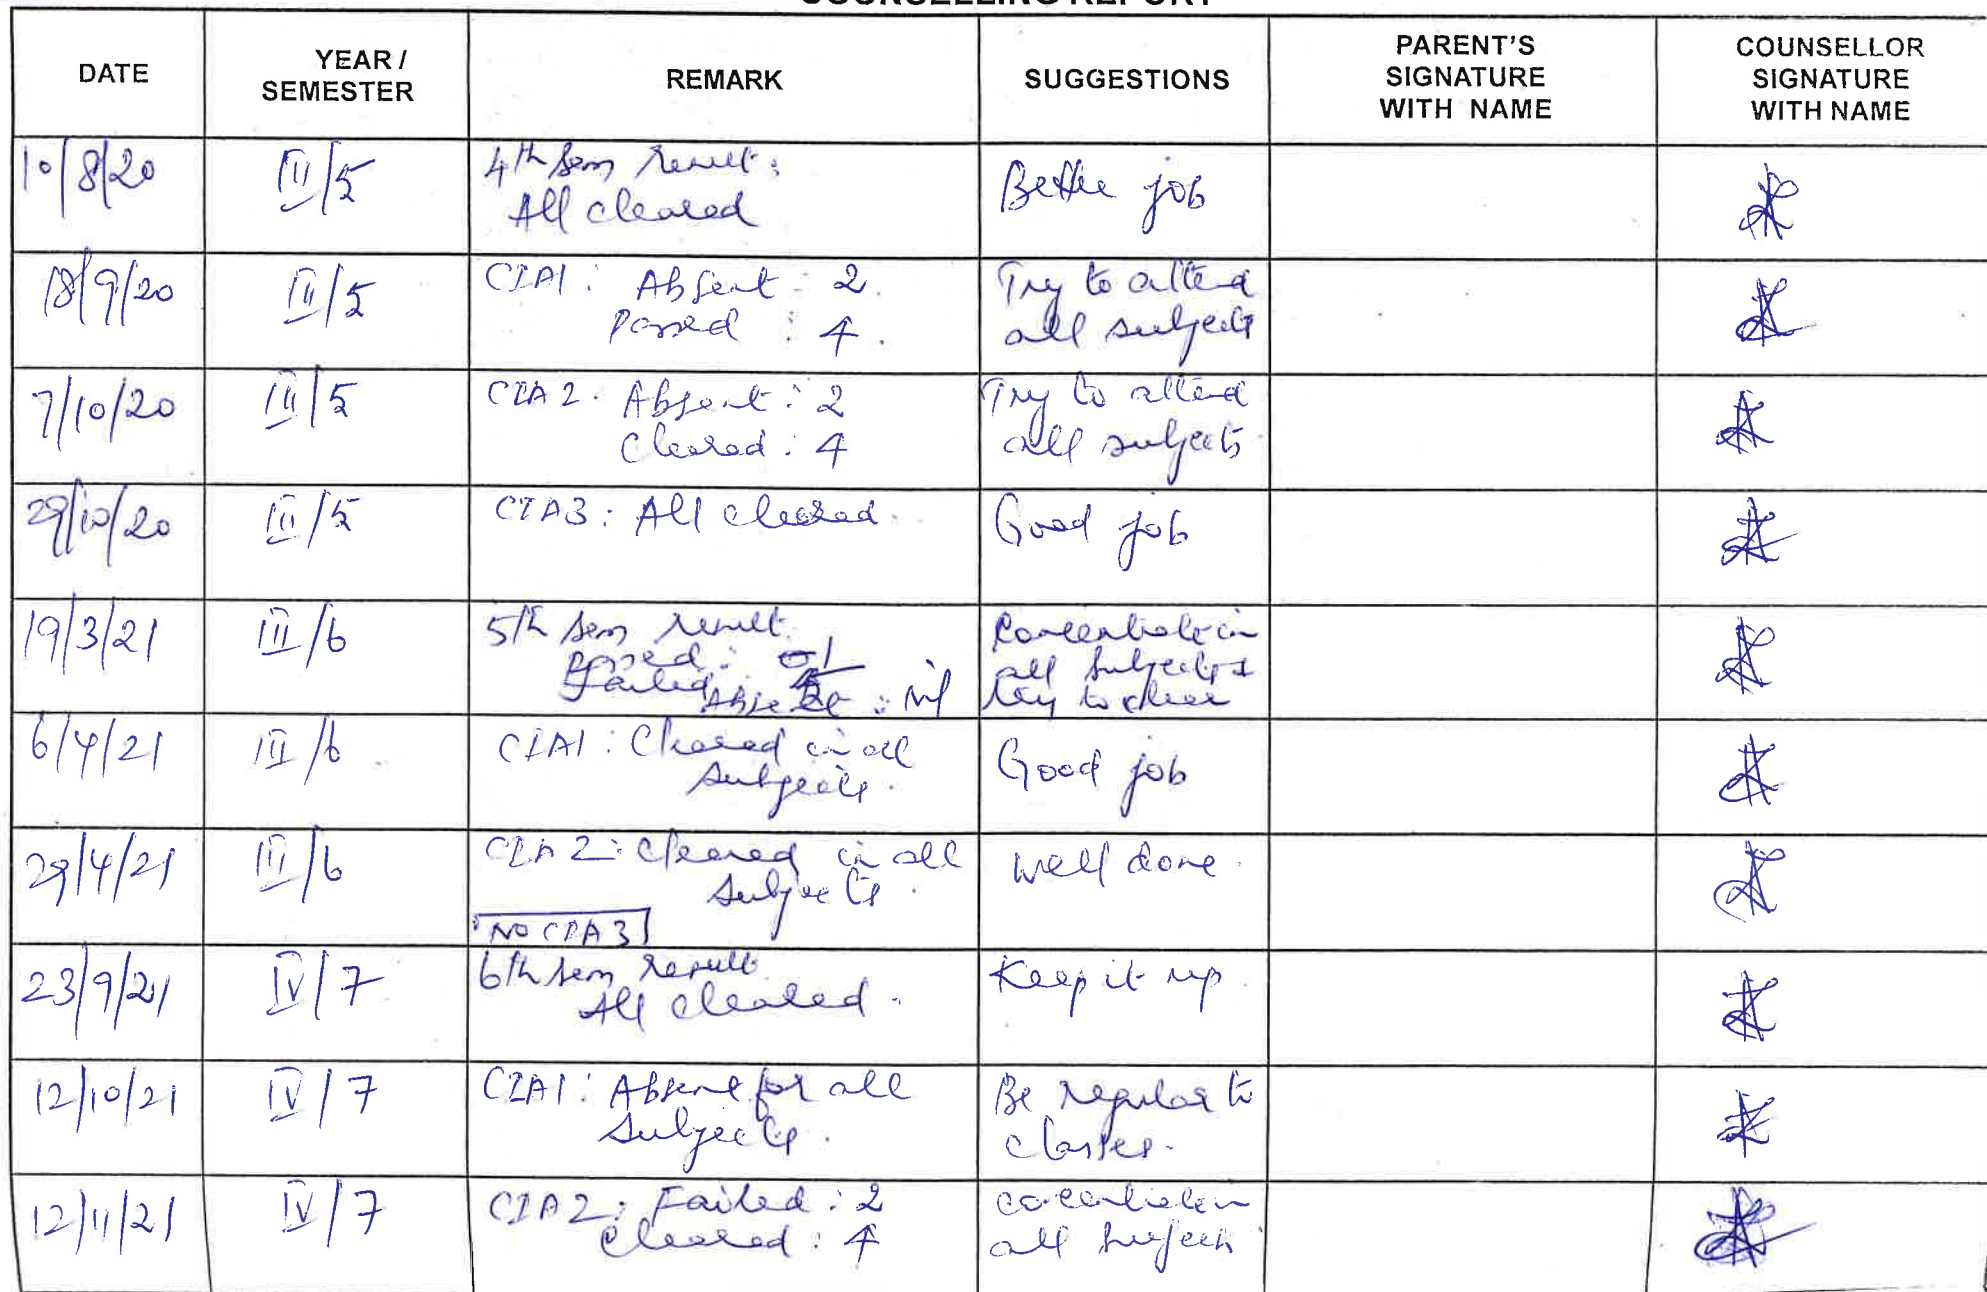 COUNSELLING REPORT
DATE
YEAR /
SEMESTER
REMARK
SUGGESTIONS
PARENT'S
SIGNATURE
WITH NAME
COUNSELLOR
SIGNATURE
WITH NAME
10/8/20
III/5
4th sem result:
All cleared
Better job
18/9/20
III/5
CIA1: Absent: 2
passed : 4.
Try to attend
all subjects
7/10/20
III/5
CIA2. Absent: 2
Cleared: 4
Try to attend
all subjects
29/10/20
III/5
CIA3: All cleared.
Good job
19/3/21
III/6
5th sem result
passed:
Failed
Absent : Nil
Concentrate in
all subjects &
try to clear
6/4/21
III/6
CIA1: Cleared in all
subjects.
Good job
29/4/21
III/6
CIA2: Cleared in all
subjects
NO CIA3
Well done.
23/9/21
IV/7
6th sem result
All cleared.
Keep it up.
12/10/21
IV/7
CIA1: Absent for all
subjects.
Be regular to
classes.
12/11/21
IV/7
CIA2: Failed: 2
Cleared: 4
Concentrate in
all subjects